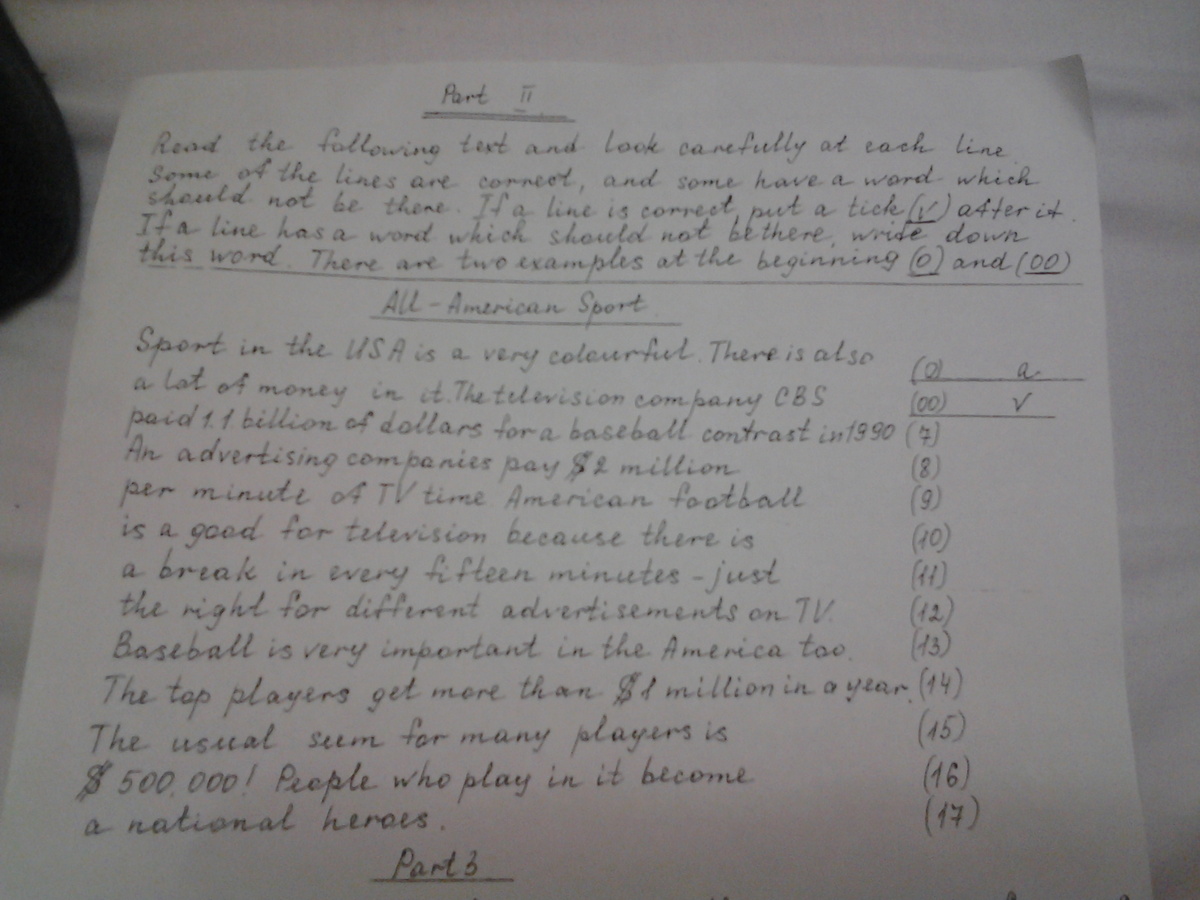 Part II
Read the following text and look carefully at each line.
Some of the lines are correct, and some have a word which
should not be there. If a line is correct, put a tick (V) after it.
If a line has a word which should not be there, write down
this word. There are two examples at the beginning (0) and (00)
All-American Sport.
Sport in the USA is a very colourful. There is also (0) a
a lot of money in it. The television company CBS (00) V
paid 1.1 billion of dollars for a baseball contrast in 1990 (7)
An advertising companies pay $2 million (8)
per minute of TV time. American football (9)
is a good for television because there is (10)
a break in every fifteen minutes - just (11)
the right for different advertisements on TV. (12)
Baseball is very important in the America too. (13)
The top players get more than $1 million in a year. (14)
The usual sum for many players is (15)
$500,000! People who play in it become (16)
a national heroes. (17)
Part 3